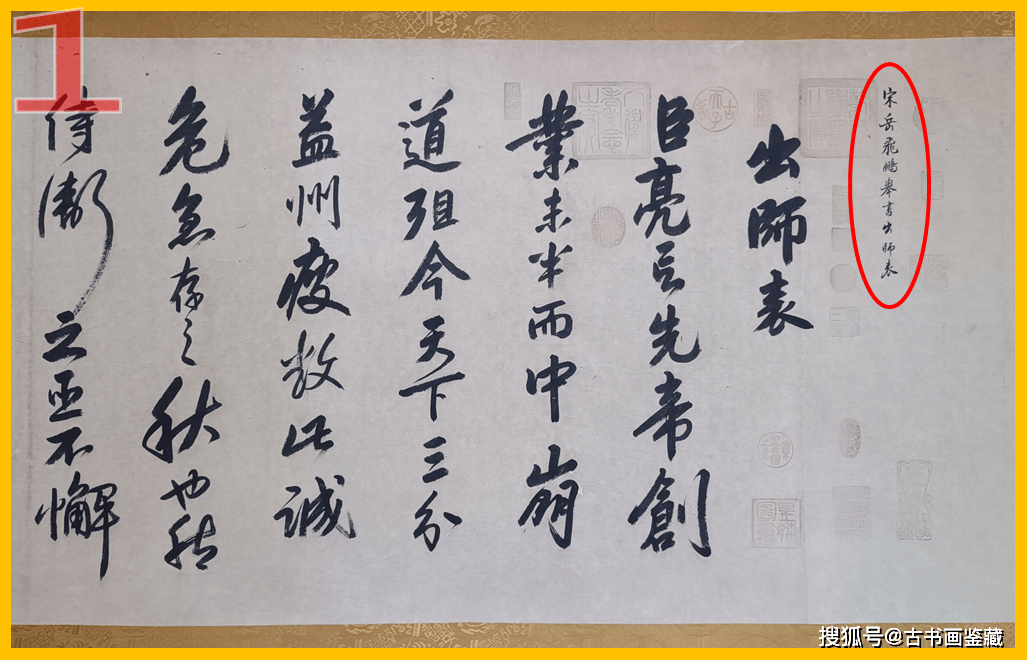 1
宋岳飛鵬舉書出師表
出師表
臣亮言先帝創
業未半而中崩
道殂今天下三分
益州疲敝此誠
危急存亡之秋也然
侍衛之臣不懈
搜狐号@古书画鉴藏